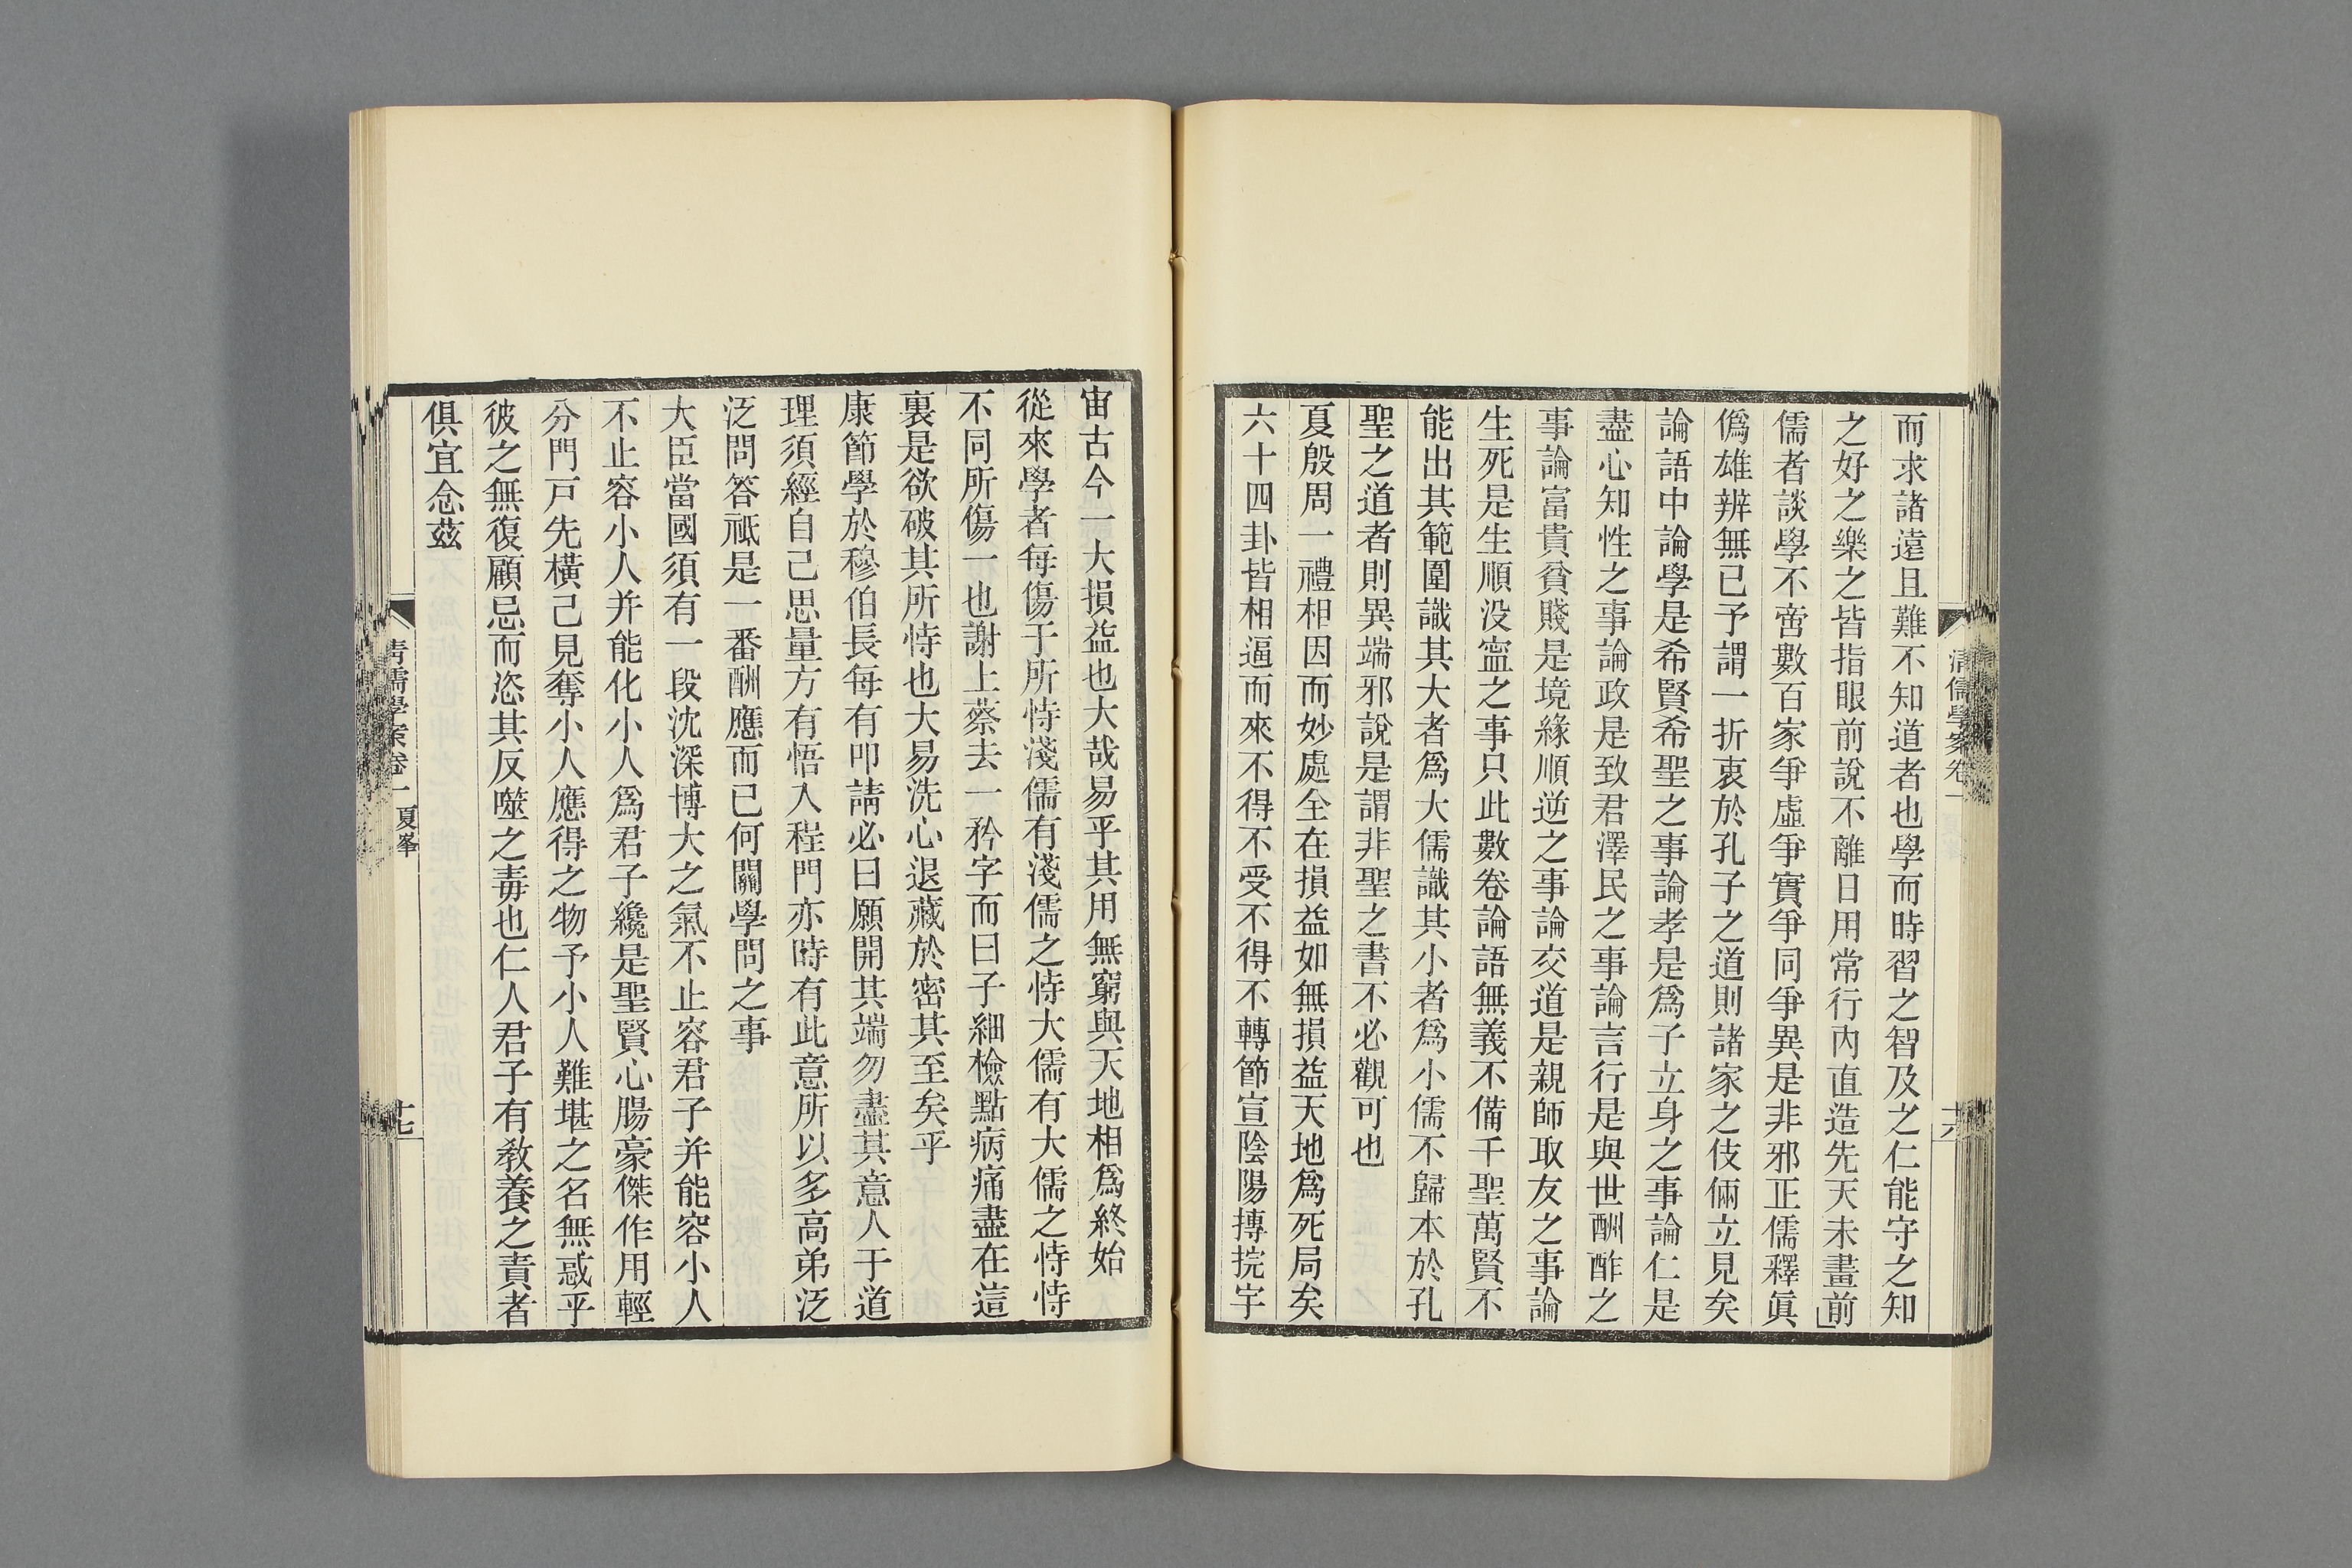 而求諸遠且難不知道者也學而時習之智及之仁能守之知
之好之樂之皆指眼前說不離日用常行內直造先天未畫前
儒者談學不啻數百家爭虛爭實爭同爭異是非邪正儒釋眞
僞雄辨無已予謂一折衷於孔子之道則諸家之伎倆立見矣
論語中論學是希賢希聖之事論孝是爲子立身之事論仁是
盡心知性之事論政是致君澤民之事論言行是與世酬酢之
事論富貴貧賤是境緣順逆之事論交道是親師取友之事論
生死是生順没寍之事只此數卷論語無義不備千聖萬賢不
能出其範圍識其大者爲大儒識其小者爲小儒不歸本於孔
聖之道者則異端邪說是謂非聖之書不必觀可也
夏殷周一禮相因而妙處全在損益如無損益天地爲死局矣
六十四卦皆相逼而來不得不受不得不轉節宣陰陽摶捖宇
清儒學案卷一
十六
宙古今一大損益也大哉易乎其用無窮與天地相爲終始
從來學者每傷于所恃淺儒有淺儒之恃大儒有大儒之恃恃
不同所傷一也謝上蔡去一矜字而曰子細檢點病痛盡在這
裏是欲破其所恃也大易洗心退藏於密其至矣乎
康節學於穆伯長每有叩請必曰願開其端勿盡其意人于道
理須經自己思量方有悟入程門亦時有此意所以多高弟泛
泛問答祗是一番酬應而已何關學問之事
大臣當國須有一段沈深博大之氣不止容君子并能容小人
不止容小人并能化小人爲君子纔是聖賢心腸豪傑作用輕
分門戸先橫己見奪小人應得之物予小人難堪之名無惑乎
彼之無復顧忌而恣其反噬之毒也仁人君子有敎養之責者
俱宜念茲
清儒學案卷一 夏峯
十七